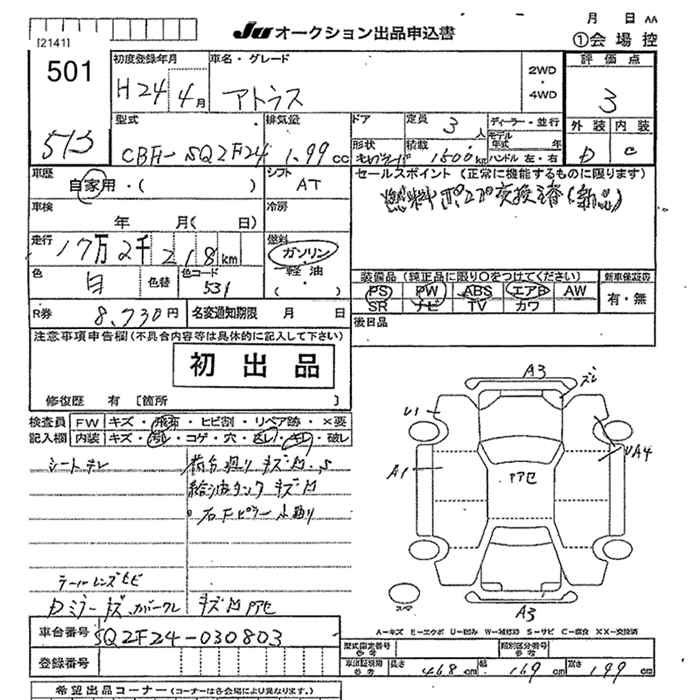 JU オークション出品申込書
月 日 AA
[2141]
①会場控
501
513
初度登録年月
H24年4月
車名・グレード
アトラス
2WD・4WD
評価点
3
型式
CBF-SQ2F24
排気量
1.99cc
ドア
定員
3人
ディーラー・並行
モデル年式 年
形状
積載
1500kg
ハンドル 左・右
外装 内装
D C
車歴
自家用・( )
シフト
AT
セールスポイント (正常に機能するものに限ります)
燃料ポンプ交換済
車検
年 月( 日)
冷房
走行
17万2千218km
燃料
ガソリン・軽油・( )
色
白
色替
色コード
531
装備品 (純正品に限り○をつけてください)
新車保証書
PS PW ABS エアB AW
SR ナビ TV カワ
有・無
R券
8,730円
名変通知期限 月 日
後日品
注意事項申告欄(不具合内容等は具体的に記入して下さい)
初出品
修復歴 有 [箇所 ]
検査員記入欄
FW キズ・飛石・ヒビ割・リペア跡・×要
内装 キズ・汚レ・コゲ・穴・返レ・キレ・破レ
シートキレ
荷台廻りキズ凹、S
給油タンクキズ凹
テールレンズヒビ
Dミラーキズ、カバークレ
キズ凹アセ
A3
ズレ
U1
UA4
A1
アセ
スペア
A3
車台番号
SQ2F24-030803
登録番号
A-キズ E-エクボ U-凹み W-補修跡 S-サビ C-腐食 XX-交換済
型式指定番号 参考
類別区分番号 参考
車体証明用 参考
長さ 468cm
幅 169cm
高さ 199cm
希望出品コーナー(コーナーは各会場により異なります。)